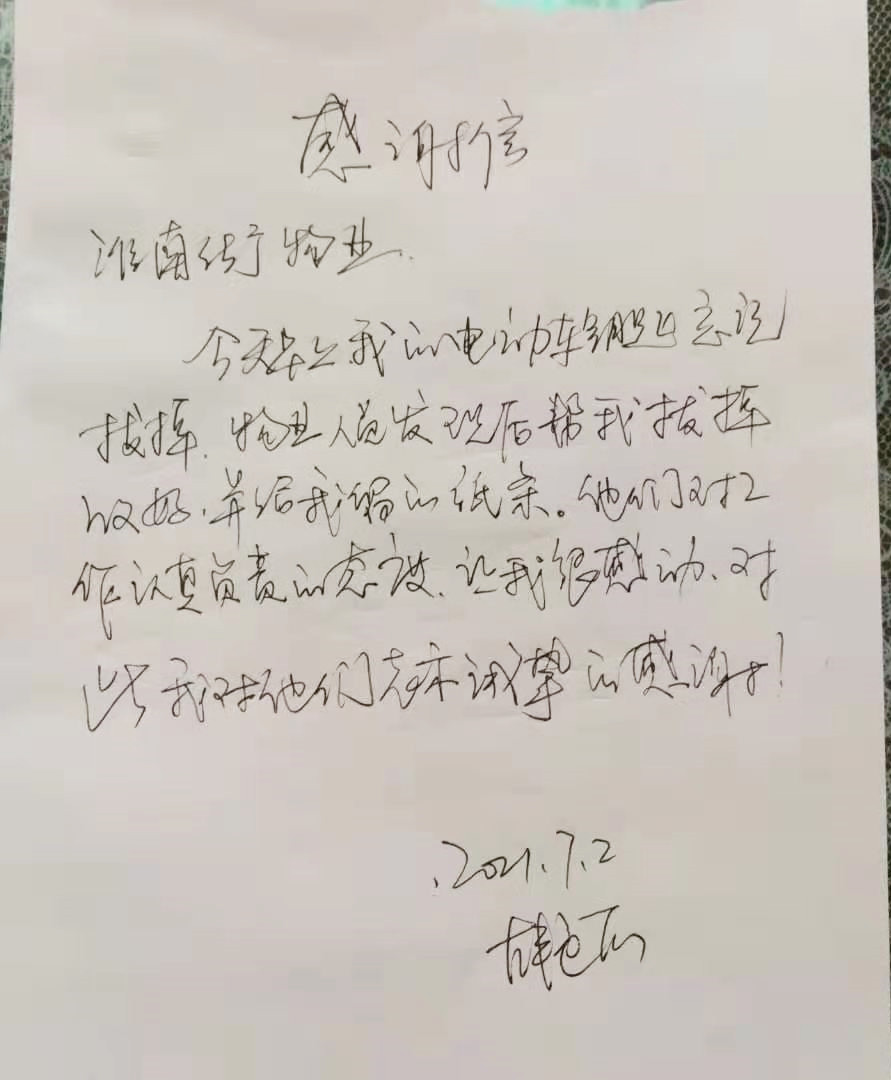 感谢信
淮南街物业.
今天早上我的电动车钥匙忘记
拔掉.物业人员发现后帮我拔掉
收好.并给我留的纸条。他们对工
作认真负责的态度.让我很感动.对
此我对他们表示诚挚的感谢!
.2021.7.2